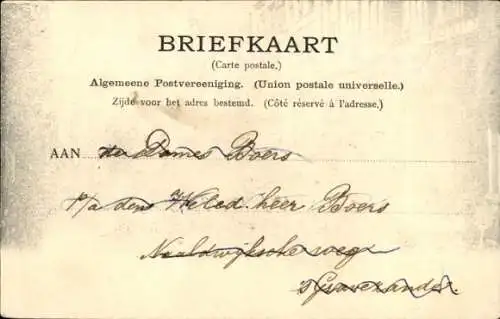 BRIEFKAART
(Carte postale.)
Algemeene Postvereeniging. (Union postale universelle.)
Zijde voor het adres bestemd. (Côté réservé à l'adresse.)
AAN de Dames Boers
p/a den Weled. heer Boers
Naaldwijksche weg
's Gravezande.